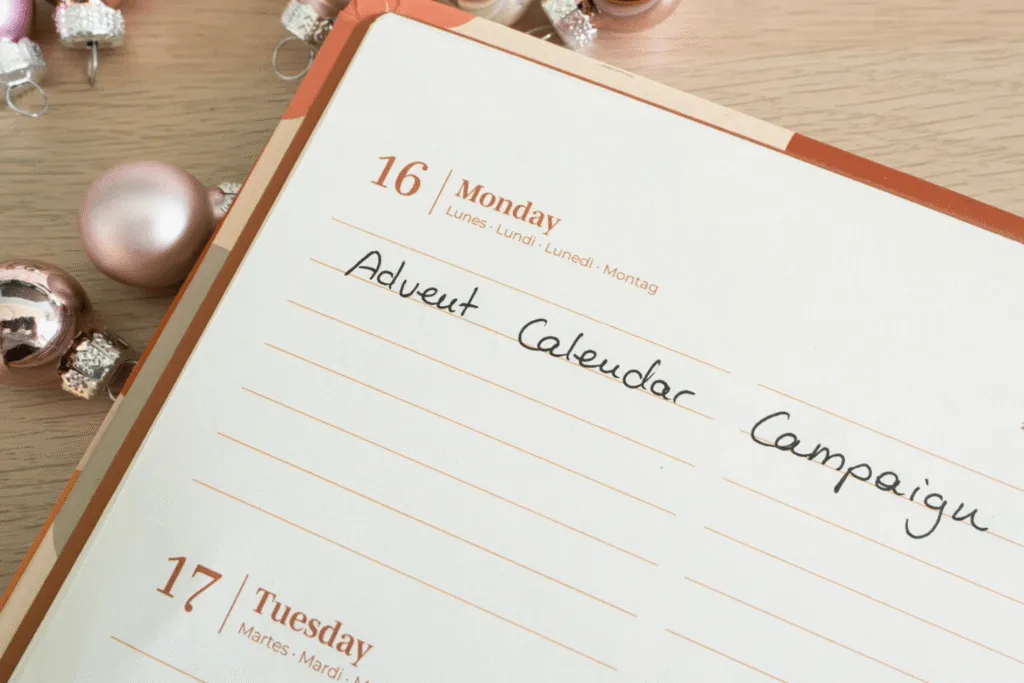 16 Monday
Lunes · Lundi · Lunedì · Montag
Advent Calendar Campaign
17 Tuesday
Martes · Mardi ·